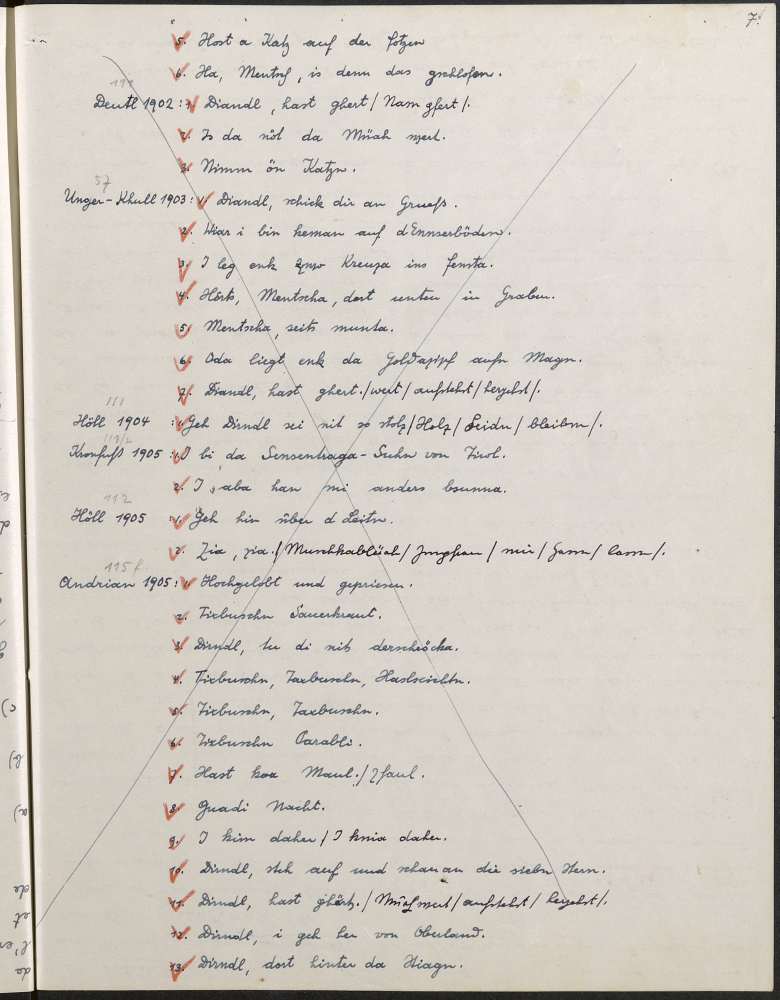 7.
5. Host a Katz auf der fotzen
6. Ha, Mentsch, is denn das gschlofen.
111
Deutl 1902: 1. Diandl, hast ghert / Nam gfert /.
2. Is da nöt da Müah wert.
3. Nimm ön Katzn.
57
Unger-Khull 1903: 1. Diandl, schick dir an Gruess.
2. Wiar i bin keman auf d'Ennserböden.
3. I leg enk zwo Kreuza ins fensta.
4. Hörts, Mentscha, dort unten in Graben.
5. Mentscha, seits munta.
6. Oda liegt enk da Goldazipf aufn Magn.
7. Diandl, hast ghert. / wert / aufstehst / hergehst /.
111
Höll 1904 : 1. Geh Dirndl sei nit so stolz / Holz / Seidn / bleibm /.
111/2
Kronfuß 1905 : 1. I bi da Sensentraga-Suhn von Tirol.
2. I, aba han mi anders bsunna.
112
Höll 1905 1. Geh hin über d Leitn.
2. Zia, zia. / / Jungfrau / mir / / lassn /.
115 f.
Andrian 1905: 1. Hochgelobt und gepriesen.
2. Tixbuschn Sauerkraut.
3. Dirndl, tu di nit derschröcka.
4. Tixbuschn, Taxbuschn, Haslscichtn.
5. Tixbuschn, Taxbuschn.
6. Tixbuschn Parabli.
7. Hast koa Maul. / Zfaul.
8. Guadi Nacht.
9. I kim daher / I knia daher.
10. Dirndl, steh auf und schau an die siebn Stern.
11. Dirndl, hast ghört. / Müah wert / aufstehst / hergehst /.
12. Dirndl, i geh her von Oberland.
13. Dirndl, dort hinter da Stiagn.